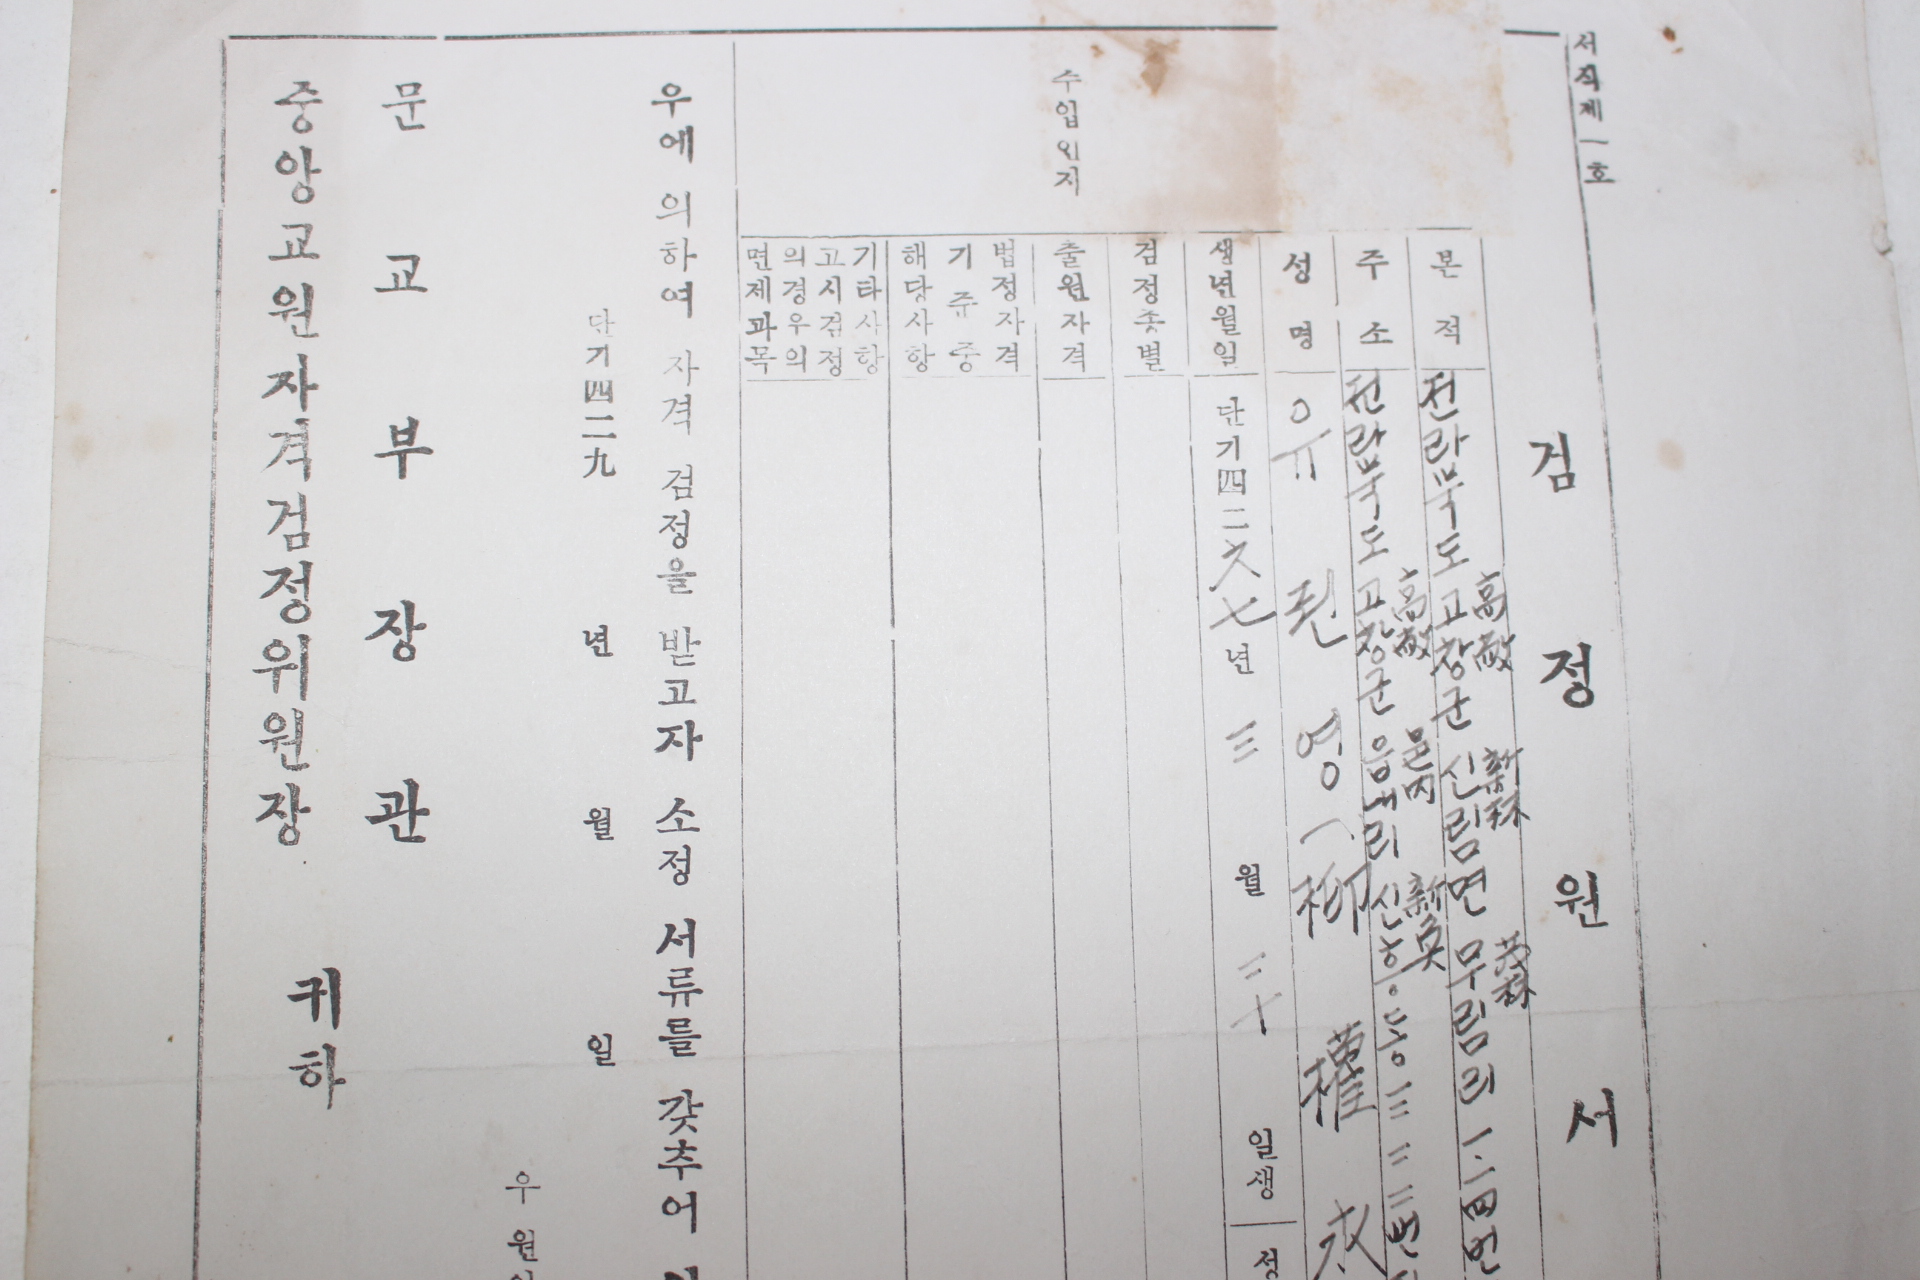 서직제一호
검정원서
본적 전라북도 고창군 신림면 무림리 一二四번
高敞 新林 茂林
주소 전라북도 고창군 읍내리 신흥동 三三三번
高敞 邑內 新興
성명 유 권 영 (柳 權 永
생년월일 단기四二六七년 三월 二十일생
성
검정종별
출원자격
법정자격
기준중
해당사항
기타사항
고시검정
의경우의
면제과목
수입인지
우에 의하여 자격 검정을 받고자 소정 서류를 갖추어
단기四二九 년 월 일
우원
문교부장관
중앙교원자격검정위원장 귀하